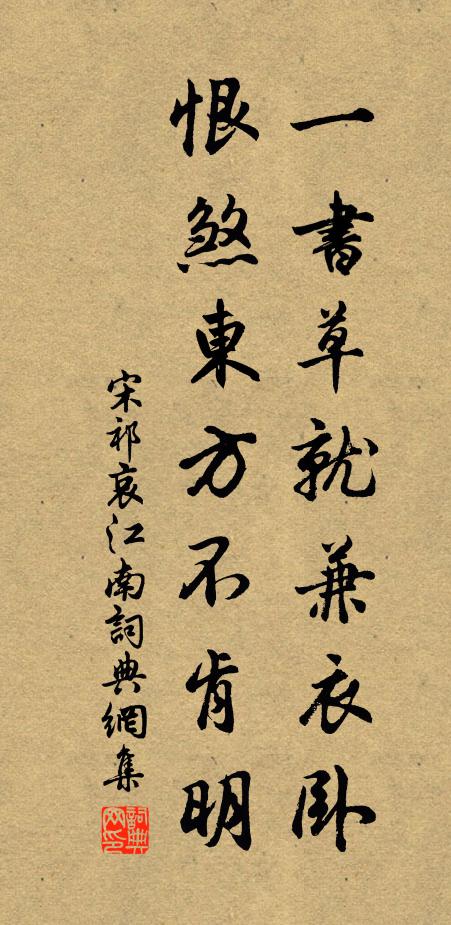 一書草就兼衣卧
恨煞東方不肯明
宋祁哀江南詞典網集
詞典網印